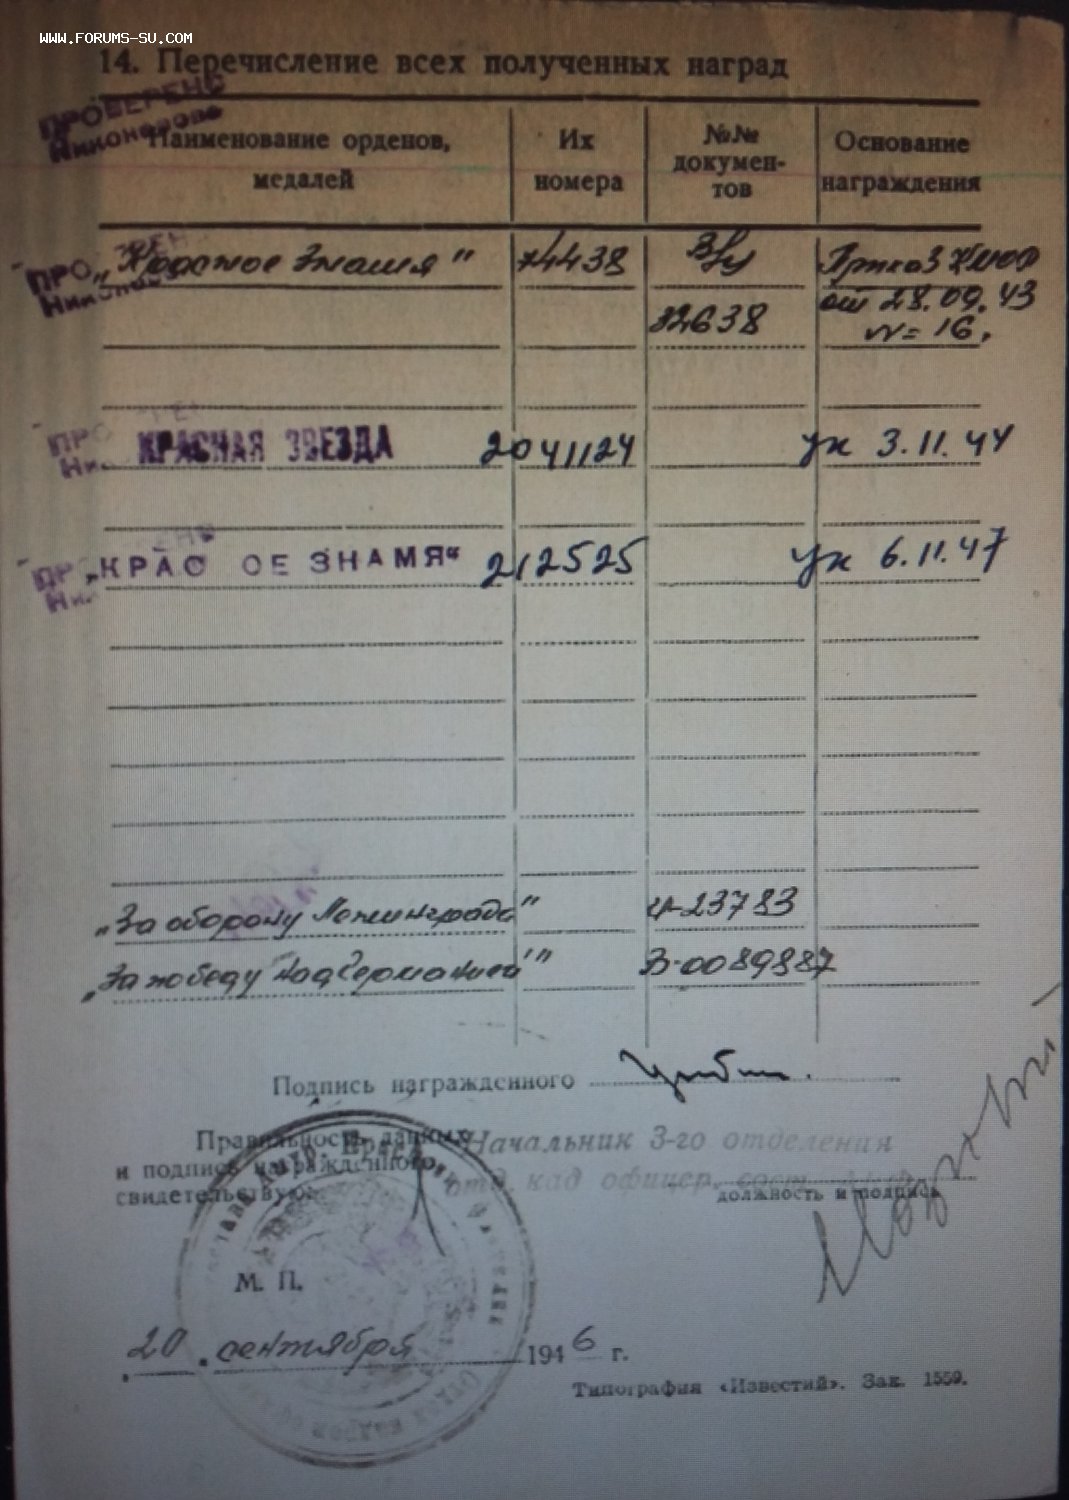 WWW.FORUMS-SU.COM
14. Перечисление всех полученных наград
ПРОВЕРЕНО
Наименование орденов, медалей
Их номера
№№ докумен-тов
Основание награждения
„Красное Знамя" 4438 Приказ
от 28.09.43
32638 №=16.
КРАСНАЯ ЗВЕЗДА 2041124 ук 3.11.44
„КРАС ОЕ ЗНАМЯ“ 212525 ук 6.11.47
„За оборону Ленинграда" 23783
„За победу над Германией" В-0089887
Подпись награжденного
Правильность данных
и подпись награжденного
свидетельствую:
Начальник 3-го отделения
отд. кад офицер.
должность и подпись
М. П.
20 . сентября 1946 г.
Типография «Известий». Зак. 1559.